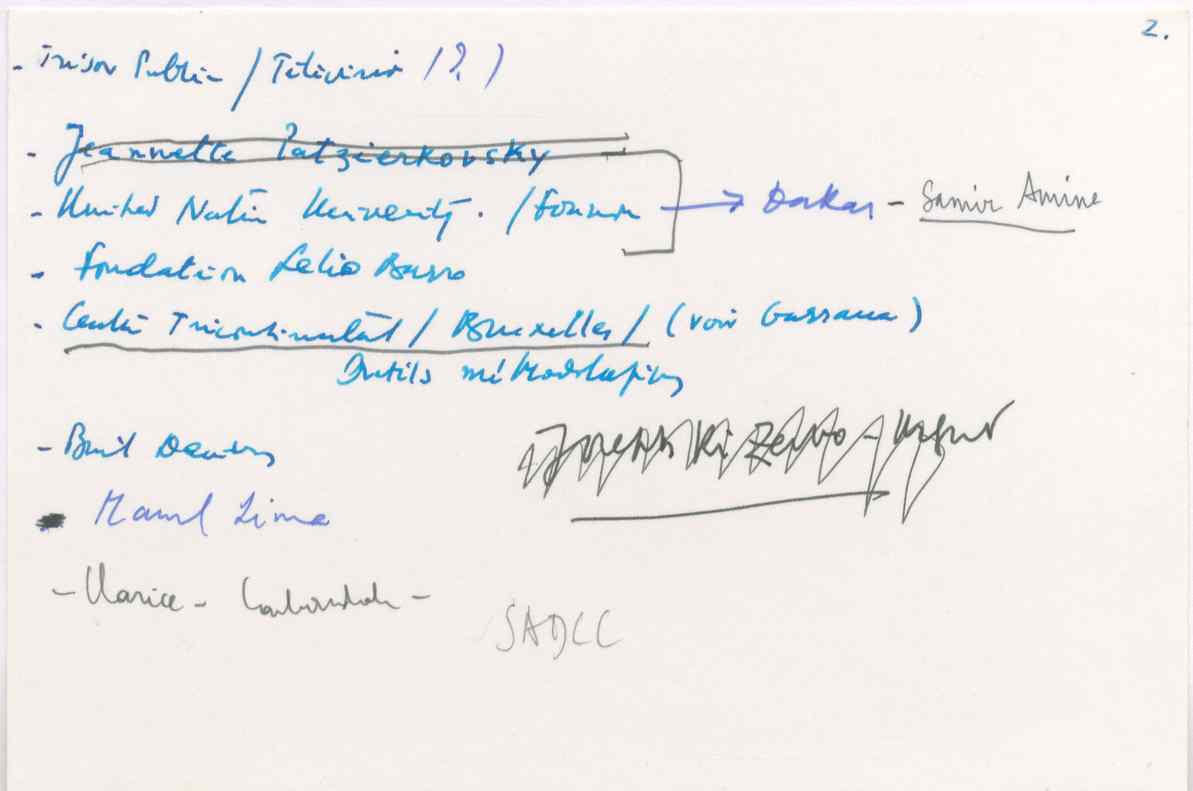 2.
- Trésor Public / Télévision (?)
- Jeannette Patzierkovsky
- United Nation University. / Forum → Dakar - Samir Amine
- Fondation Lelio Basso
- Centre Tricontinental / Bruxelles / (voir Gassama)
Outils méthodologiques
- Basil Davidson
Manuel Lima
- Clarice -
Joseph Ki Zerbo -
SADCC